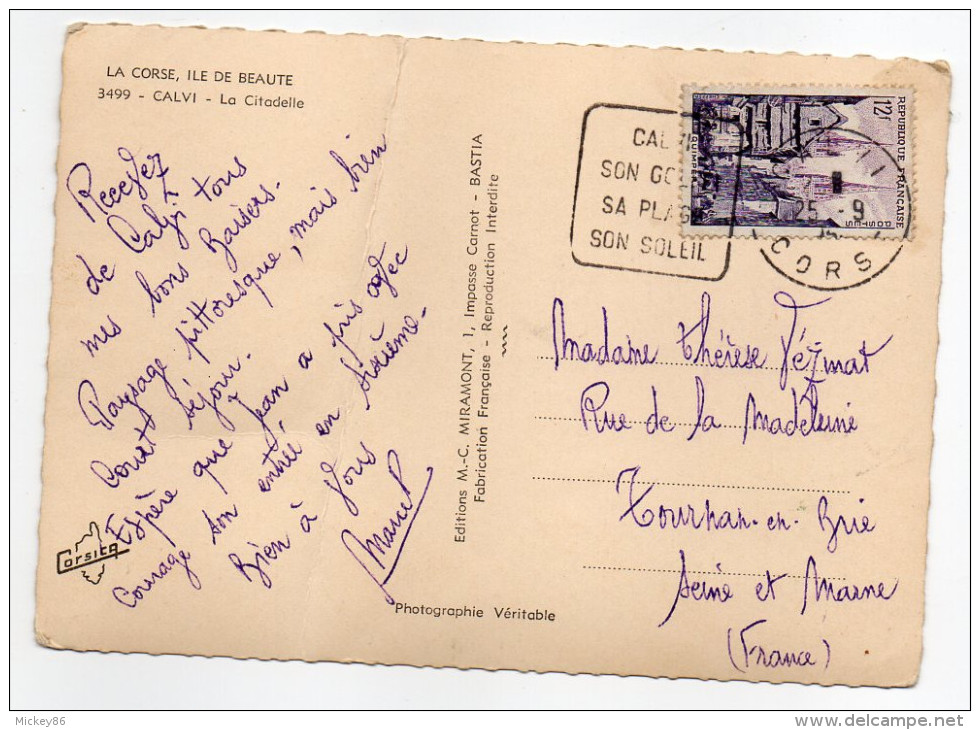 LA CORSE, ILE DE BEAUTE
3499 - CALVI - La Citadelle
Recevez
de Calvi tous
mes bons Baisers.
Paysage pittoresque, mais bien
Court séjour.
Espère que Jean a pris avec
Courage son entrée en sixième.
Bien à Vous
Marcel
Corsica
Editions M.-C. MIRAMONT, 1, Impasse Carnot - BASTIA
Fabrication Française - Reproduction Interdite
Photographie Véritable
CALVI
SON GO
SA PLAG
SON SOLEIL
REPUBLIQUE FRANÇAISE
12f
POSTES
QUIMPER
25 -9
CORS
Madame Thérèse
Rue de la Madeleine
Tournan-en-Brie
Seine et Marne
(France)
Mickey86
www.delcampe.net